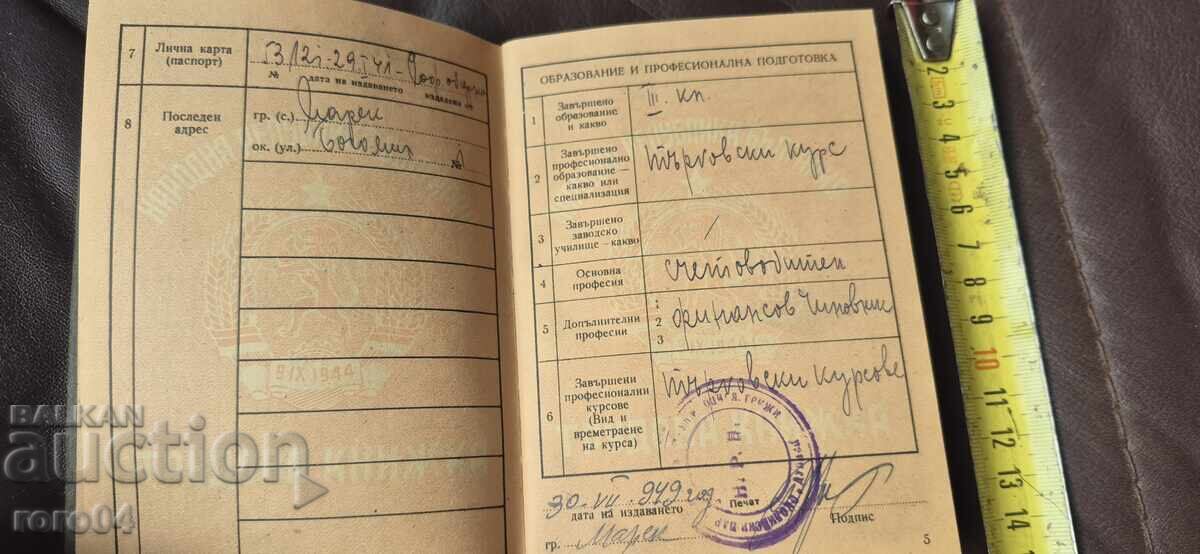 7
Лична карта
(паспорт)
№ дата на издаването издадена от
8
Последен
адрес
гр. (с.) Марек
ок. (ул.) №
9 IX 1944
ОБРАЗОВАНИЕ И ПРОФЕСИОНАЛНА ПОДГОТОВКА
1
Завършено
образование
и какво
III. кл.
2
Завършено
професионално
образование —
какво или
специализация
търговски курс
3
Завършено
заводско
училище – какво
/
4
Основна
професия
счетоводител
5
Допълнителни
професии
1
2
3
финансов чиновник
6
Завършени
професионални
курсове
(Вид и
времетраене
на курса)
търговски курсове
30. VII 949 год.
дата на издаването
Печат
Подпис
гр. Марек
5
BALKAN
auction
roro04
2 3 4 5 6 7 8 9 10 11 12 13 14